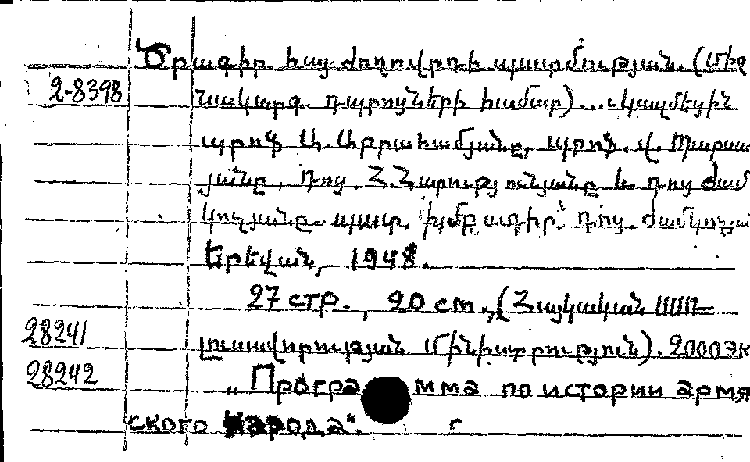 Ծրագիր հայ ժողովրդի պատմության. (Միջ
2-8398 նակարգ դպրոցների համար)... Կազմեցին
պրոֆ Ա. Աբրահամյանը, պրոֆ. Վ. Պարսա
յանը, դոց. Հ. Հարությունյանը և դոց ժամ
կոչյանը. պատ. խմբագիր՝ դոց. Ժամկոչյա
Երեվան, 1948.
27 стр., 20 см., (Հայկական ՍՍՌ
28241 լուսավորության մինիստրություն). 2000 эк
28242 „Программа по истории армя
ского народа".